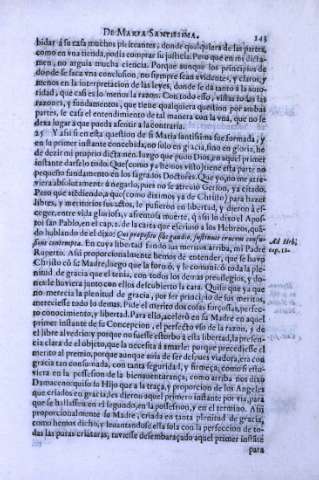 DE MARIA SANTISSIMA. 243
bidar à su casa muchos pleiteantes; donde qualquiera de las partes,
como en vna tienda, podia comprar su justicia. Pero que en mi dicta-
men, no arguia mucha ciencia. Porque aunque los principios de
donde se saca vna conclusion, no siempre sean evidentes, y claros, y
menos en la interpretacion de las leyes, donde se dà tanto à la auto-
ridad, que casi es lo menos la razon. Con todo esso, vistas todas las
razones, y fundamentos, que tiene qualquiera question por ambas
partes, se casa el entendimiento de tal manera con la vna, que no se
dexa lugar à que pueda assentir a la contraria.
25 Y assi si en esta question de si Maria santissima fue formada, y
en la primer instante concebida, no solo en gracia, sino en gloria, he
de dezir mi proprio dictamen. Iuzgo que pudo Dios, en aquel primer
instante darselo todo. Que (como ya hemos visto) tiene esta parte no
pequeño fundamento en los sagrados Doctores. Que yo, no me atre-
viera absolutamente à negarlo, pues no se atrevió Gerson, ya citado.
Pero que atēdiendo, a que (como diximos ya de Christo) para hazer
libres, y meritorios sus actos, le pusieron en libertad, y dieron à es-
coger, entre vida gloriosa, y afrentosa muerte,
tol san Pablo, en el cap. 2. de la carta que escriuio a los Hebreos, quā-
do hablando de el dixo: Qui proposito sibi gaudio, sustinuit crucem confu-
sione contempta. En cuya libertad fundó sus meritos arriba, mi Padre
Ad Heb.
cap. 12.
Ruperto. Assi proporcionalmente hemos de entender, que se huvo
Christo cō su Madre, luego que la formò, y le comunicò toda la ple-
nitud de gracia que el tenia, con todos los demas previlegios, y do-
nes: le huviera junto con ellos descubierto la cara. Quiso que ya que
no merecia la plenitud de gracia, por ser principio de sus meritos,
mereciesse todo lo demas. Pide el merito dos cosas forçosas, perfec-
to conocimiento, y libertad. Para ello, acelerò en su Madre en aquel
primer instante de su Concepcion, el perfecto vso de la razon, y de
el libre alvedrio: y porque no fuesse estorbo à esta libertad, la presen-
cia clara de el objeto, que la necesita à amarle: porque precediesse el
merito al premio, porque aunque avia de ser del, pues viadora, era con
gracia tan consumada, con tanta seguridad, y firmeça, como si estu-
viera en la possession de la bienaventurança, como arriba nos dixo
Damaceno: quiso su Hijo que a la traça, y proporcion de los Angeles
que criados en gracia, les dieron aquel primero instante por via, para
que se hallassen en el segundo, en la possession, y en el termino. Assi
proporcionalmente su Madre, criada en tanta plenitud de gracia,
como hemos dicho, y levantandose ella sola con la perfeccion de to-
das las puras criaturas, tuviesse desembaraçado aquel primer instāte
para